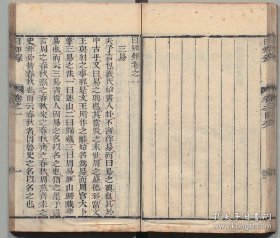 日知錄卷之一
三易
夫子言包羲氏始畫八卦不言作易而曰易之興也其於
中古乎又曰易之興也其當殷之末世周之盛德邪當文
王與紂之事邪是文王所作之辭始名為易而周官大卜
掌三易之法一曰連山二曰歸藏三曰周易連山歸藏非
易也而云三易者後人因易之名以名之也猶之墨子書
言周之春秋燕之春秋宋之春秋齊之春秋周燕齊宋之
史非必皆春秋也而云春秋者因魯史之名以名之也
日知錄
卷之一